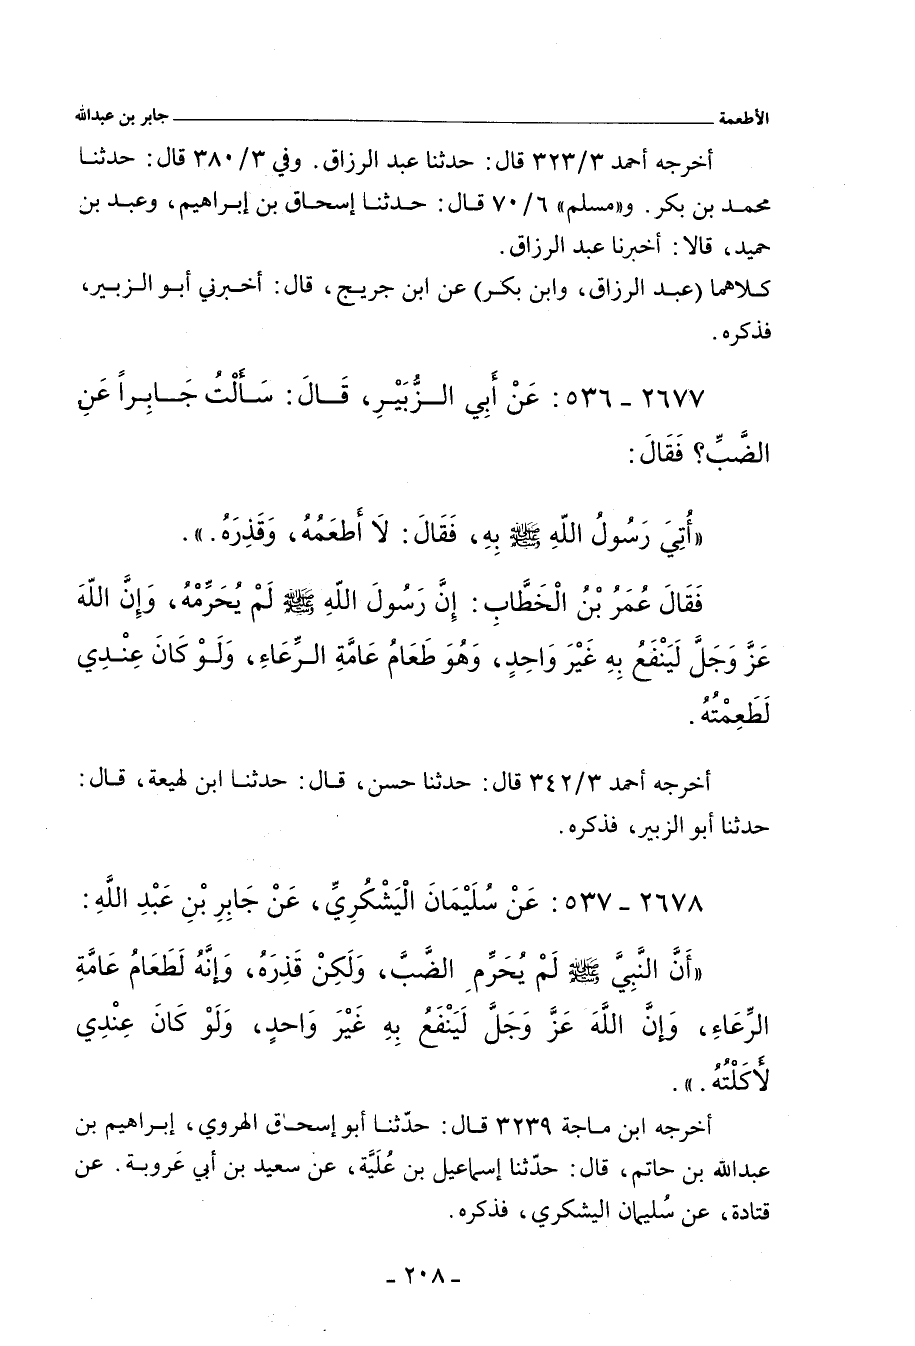 الأطعمة جابر بن عبدالله
أخرجه أحمد ٣٢٣/٣ قال: حدثنا عبد الرزاق. وفي ٣٨٠/٣ قال: حدثنا
محمد بن بكر. و«مسلم» ٧٠/٦ قال: حدثنا إسحاق بن إبراهيم، وعبد بن
حميد، قالا: أخبرنا عبد الرزاق.
كلاهما (عبد الرزاق، وابن بكر) عن ابن جريج، قال: أخبرني أبو الزبير،
فذكره.
٢٦٧٧ - ٥٣٦: عَنْ أَبِي الزُّبَيْرِ، قَالَ: سَأَلْتُ جَابِراً عَنِ
الضَّبِّ؟ فَقَالَ:
«أُتِيَ رَسُولُ اللَّهِ ﷺ بِهِ، فَقَالَ: لَا أَطعَمُهُ، وَقَذِرَهُ.».
فَقَالَ عُمَرُ بْنُ الْخَطَّابِ: إِنَّ رَسُولَ اللَّهِ ﷺ لَمْ يُحَرِّمْهُ، وَإِنَّ اللَّهَ
عَزَّ وَجَلَّ لَيَنْفَعُ بِهِ غَيْرَ وَاحِدٍ، وَهُوَ طَعَامُ عَامَّةِ الرِّعَاءِ، وَلَوْ كَانَ عِنْدِي
لَطَعِمْتُهُ.
أخرجه أحمد ٣٤٢/٣ قال: حدثنا حسن، قال: حدثنا ابن لهيعة، قال:
حدثنا أبو الزبير، فذكره.
٢٦٧٨ - ٥٣٧: عَنْ سُلَيْمَانَ الْيَشْكُرِيِّ، عَنْ جَابِرِ بْنِ عَبْدِ اللَّهِ:
«أَنَّ النَّبِيَّ ﷺ لَمْ يُحَرِّمِ الضَّبَّ، وَلَكِنْ قَذِرَهُ، وَإِنَّهُ لَطَعَامُ عَامَّةِ
الرِّعَاءِ، وَإِنَّ اللَّهَ عَزَّ وَجَلَّ لَيَنْفَعُ بِهِ غَيْرَ وَاحدٍ، وَلَوْ كَانَ عِنْدِي
لأَكَلْتُهُ.».
أخرجه ابن ماجة ٣٢٣٩ قال: حدّثنا أبو إسحاق الهروي، إبراهيم بن
عبدالله بن حاتم، قال: حدّثنا إسماعيل بن عُلَيَّة، عن سعيد بن أبي عَروبة. عن
قتادة، عن سُليمان اليشكري، فذكره.
- ٢٠٨ -